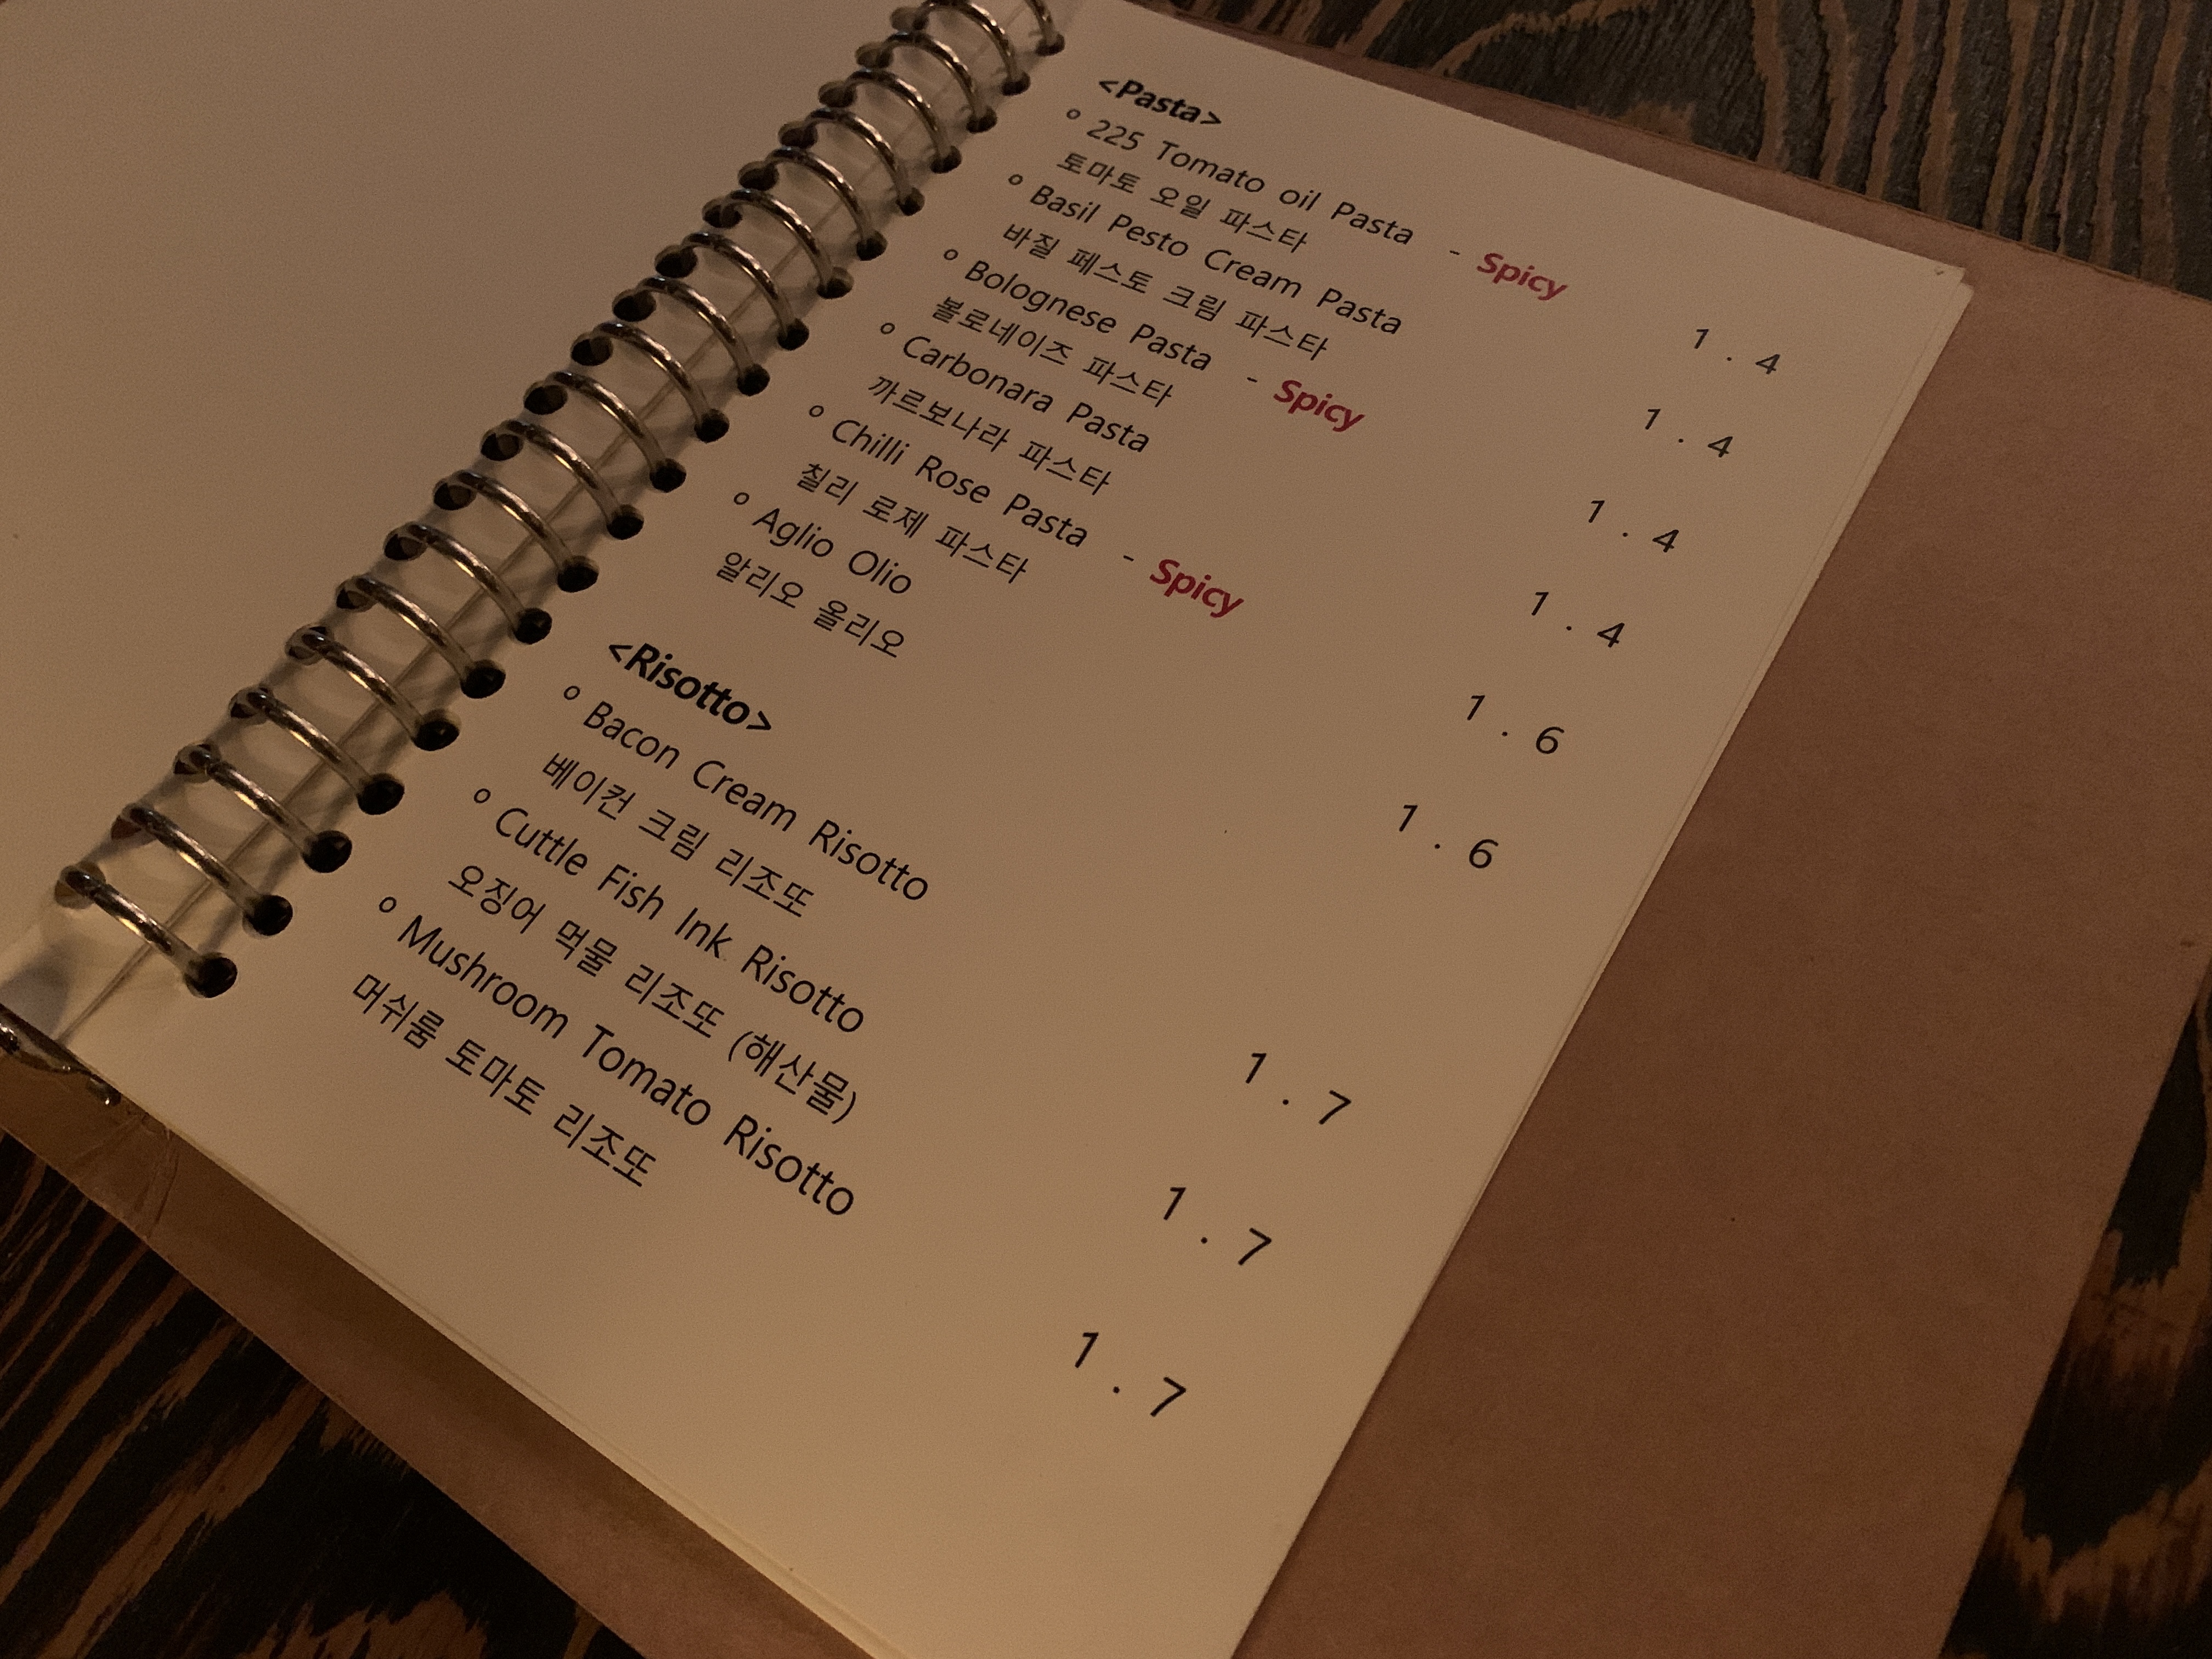 <Pasta>
o 225 Tomato oil Pasta - Spicy 1.4
토마토 오일 파스타
o Basil Pesto Cream Pasta 1.4
바질 페스토 크림 파스타
o Bolognese Pasta - Spicy 1.4
볼로네이즈 파스타
o Carbonara Pasta 1.4
까르보나라 파스타
o Chilli Rose Pasta - Spicy 1.6
칠리 로제 파스타
o Aglio Olio 1.6
알리오 올리오
<Risotto>
o Bacon Cream Risotto 1.7
베이컨 크림 리조또
o Cuttle Fish Ink Risotto 1.7
오징어 먹물 리조또 (해산물)
o Mushroom Tomato Risotto 1.7
머쉬룸 토마토 리조또